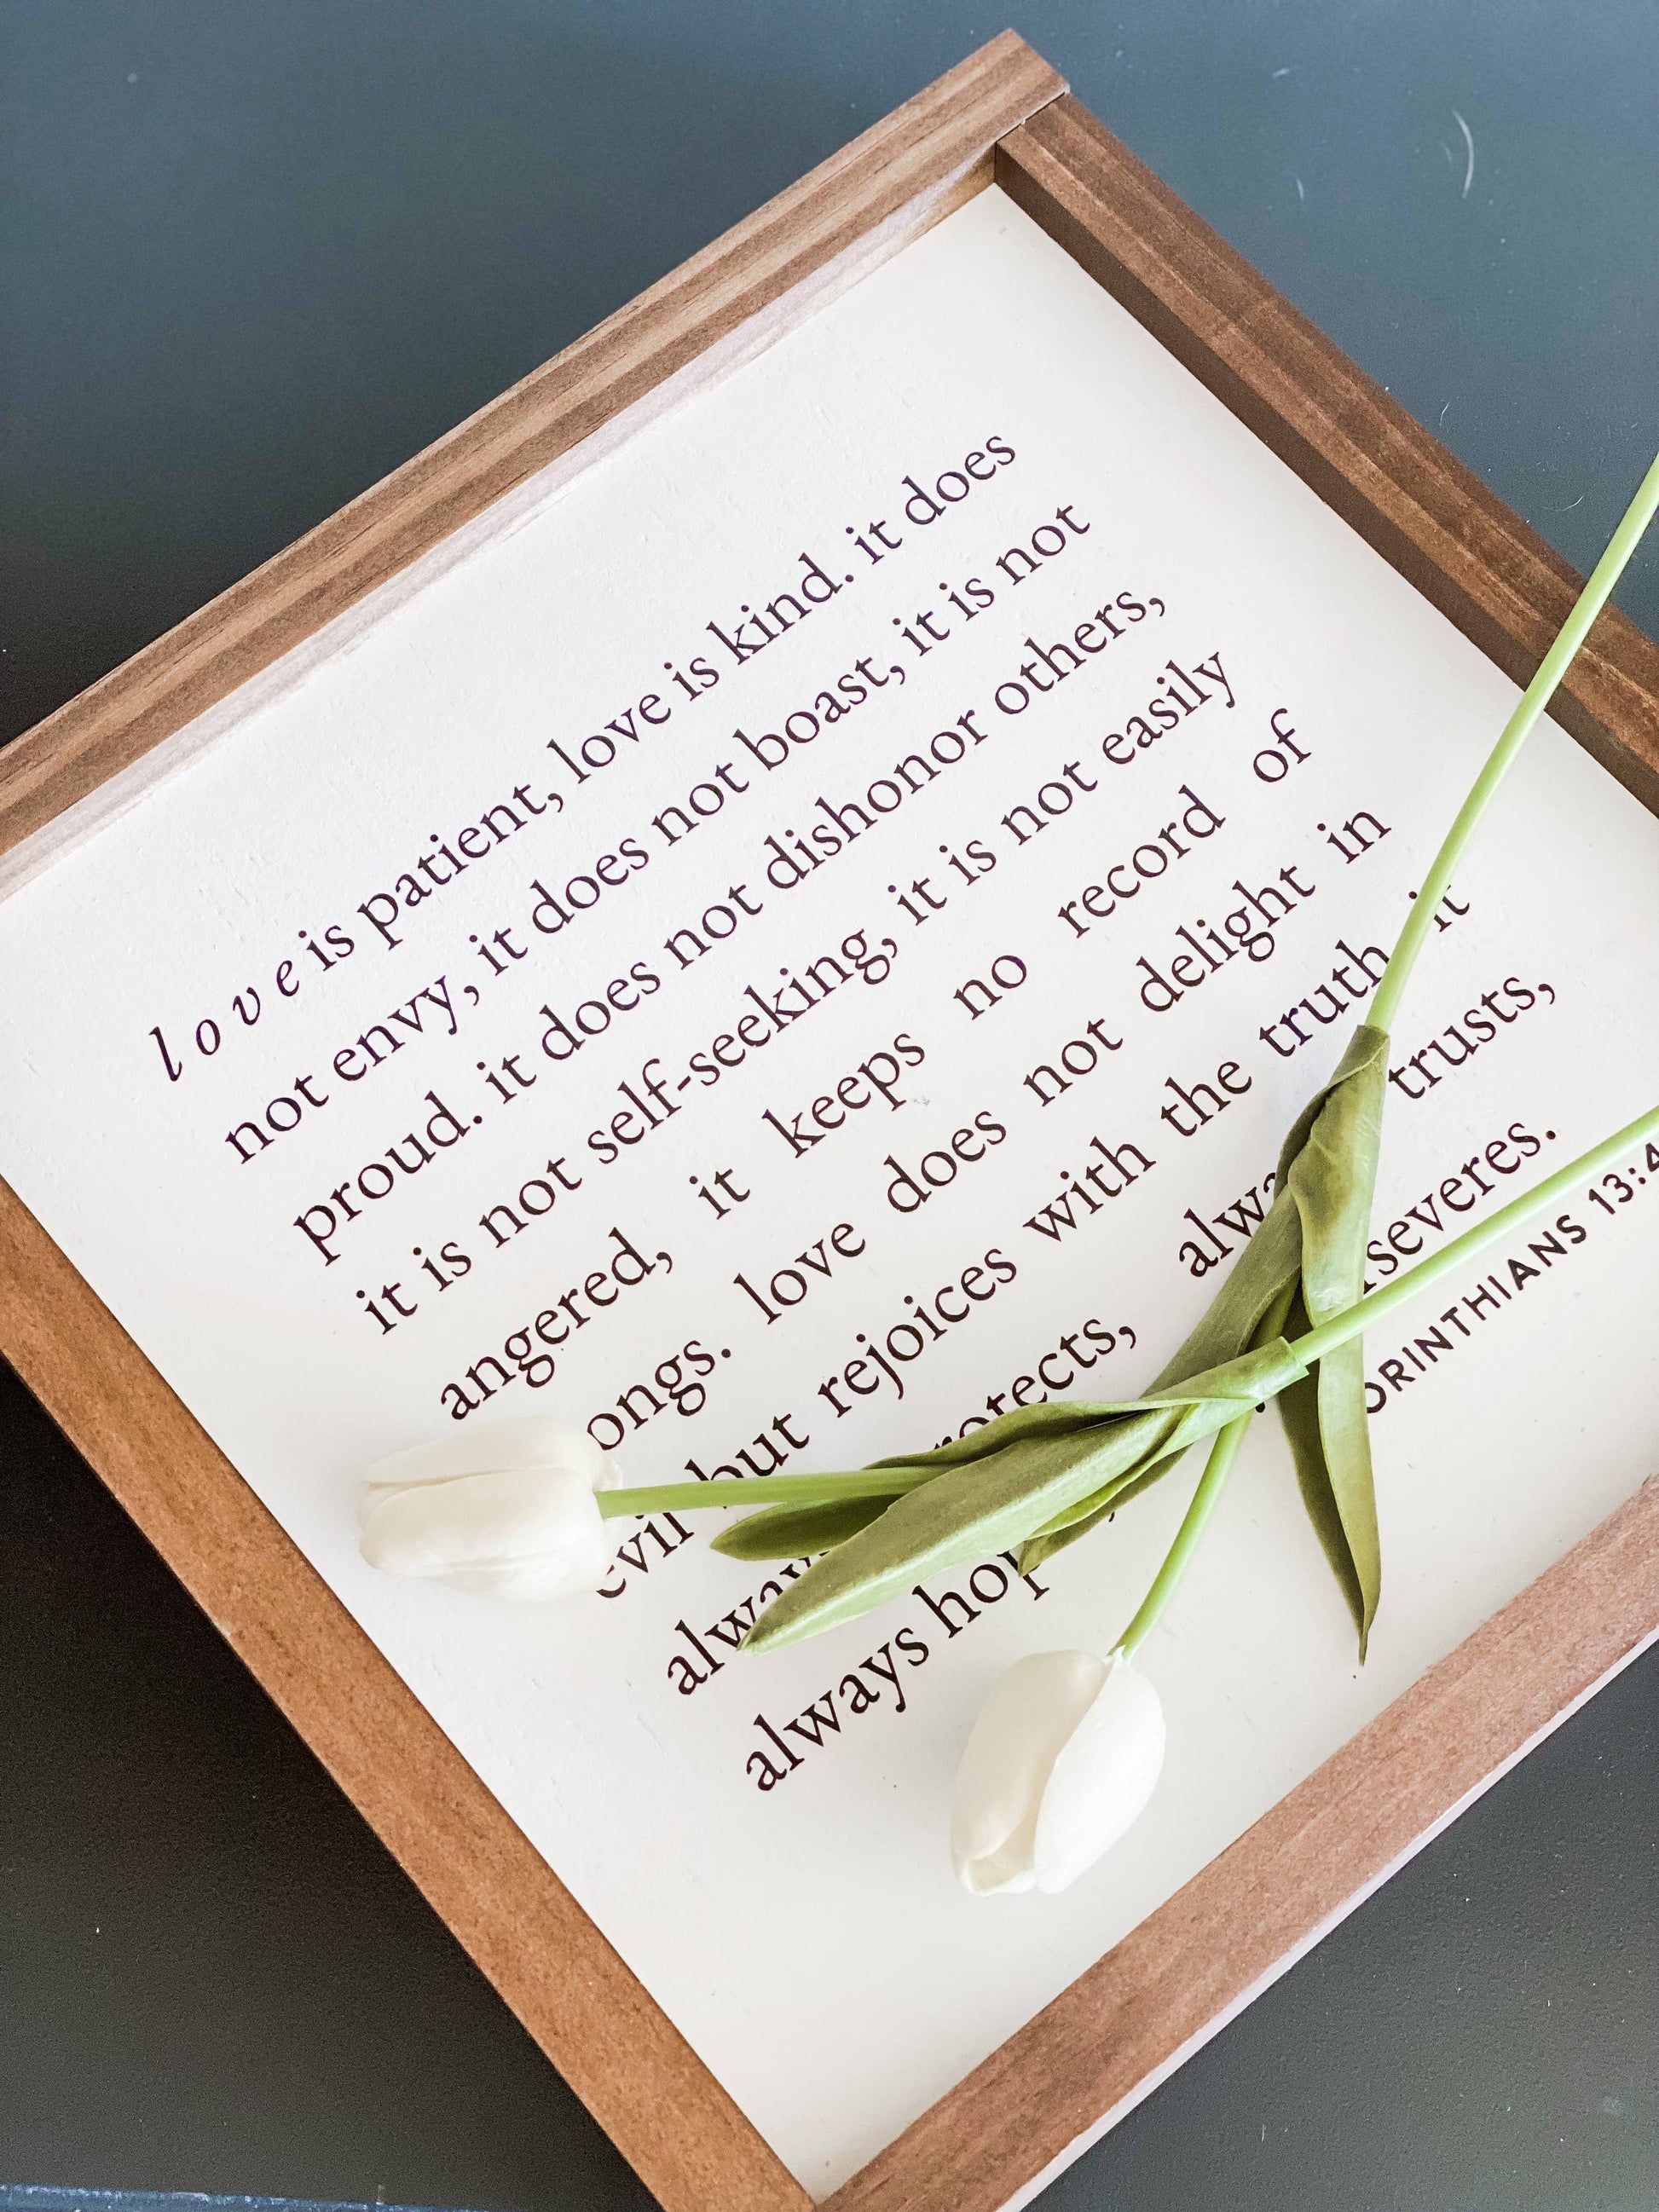 love is patient, love is kind. it does
not envy, it does not boast, it is not
proud. it does not dishonor others,
it is not self-seeking, it is not easily
angered, it keeps no record of
ongs. love does not delight in
evil but rejoices with the truth it
alw rotects, alwa trusts,
always hop severes.
ORINTHIANS 13:4